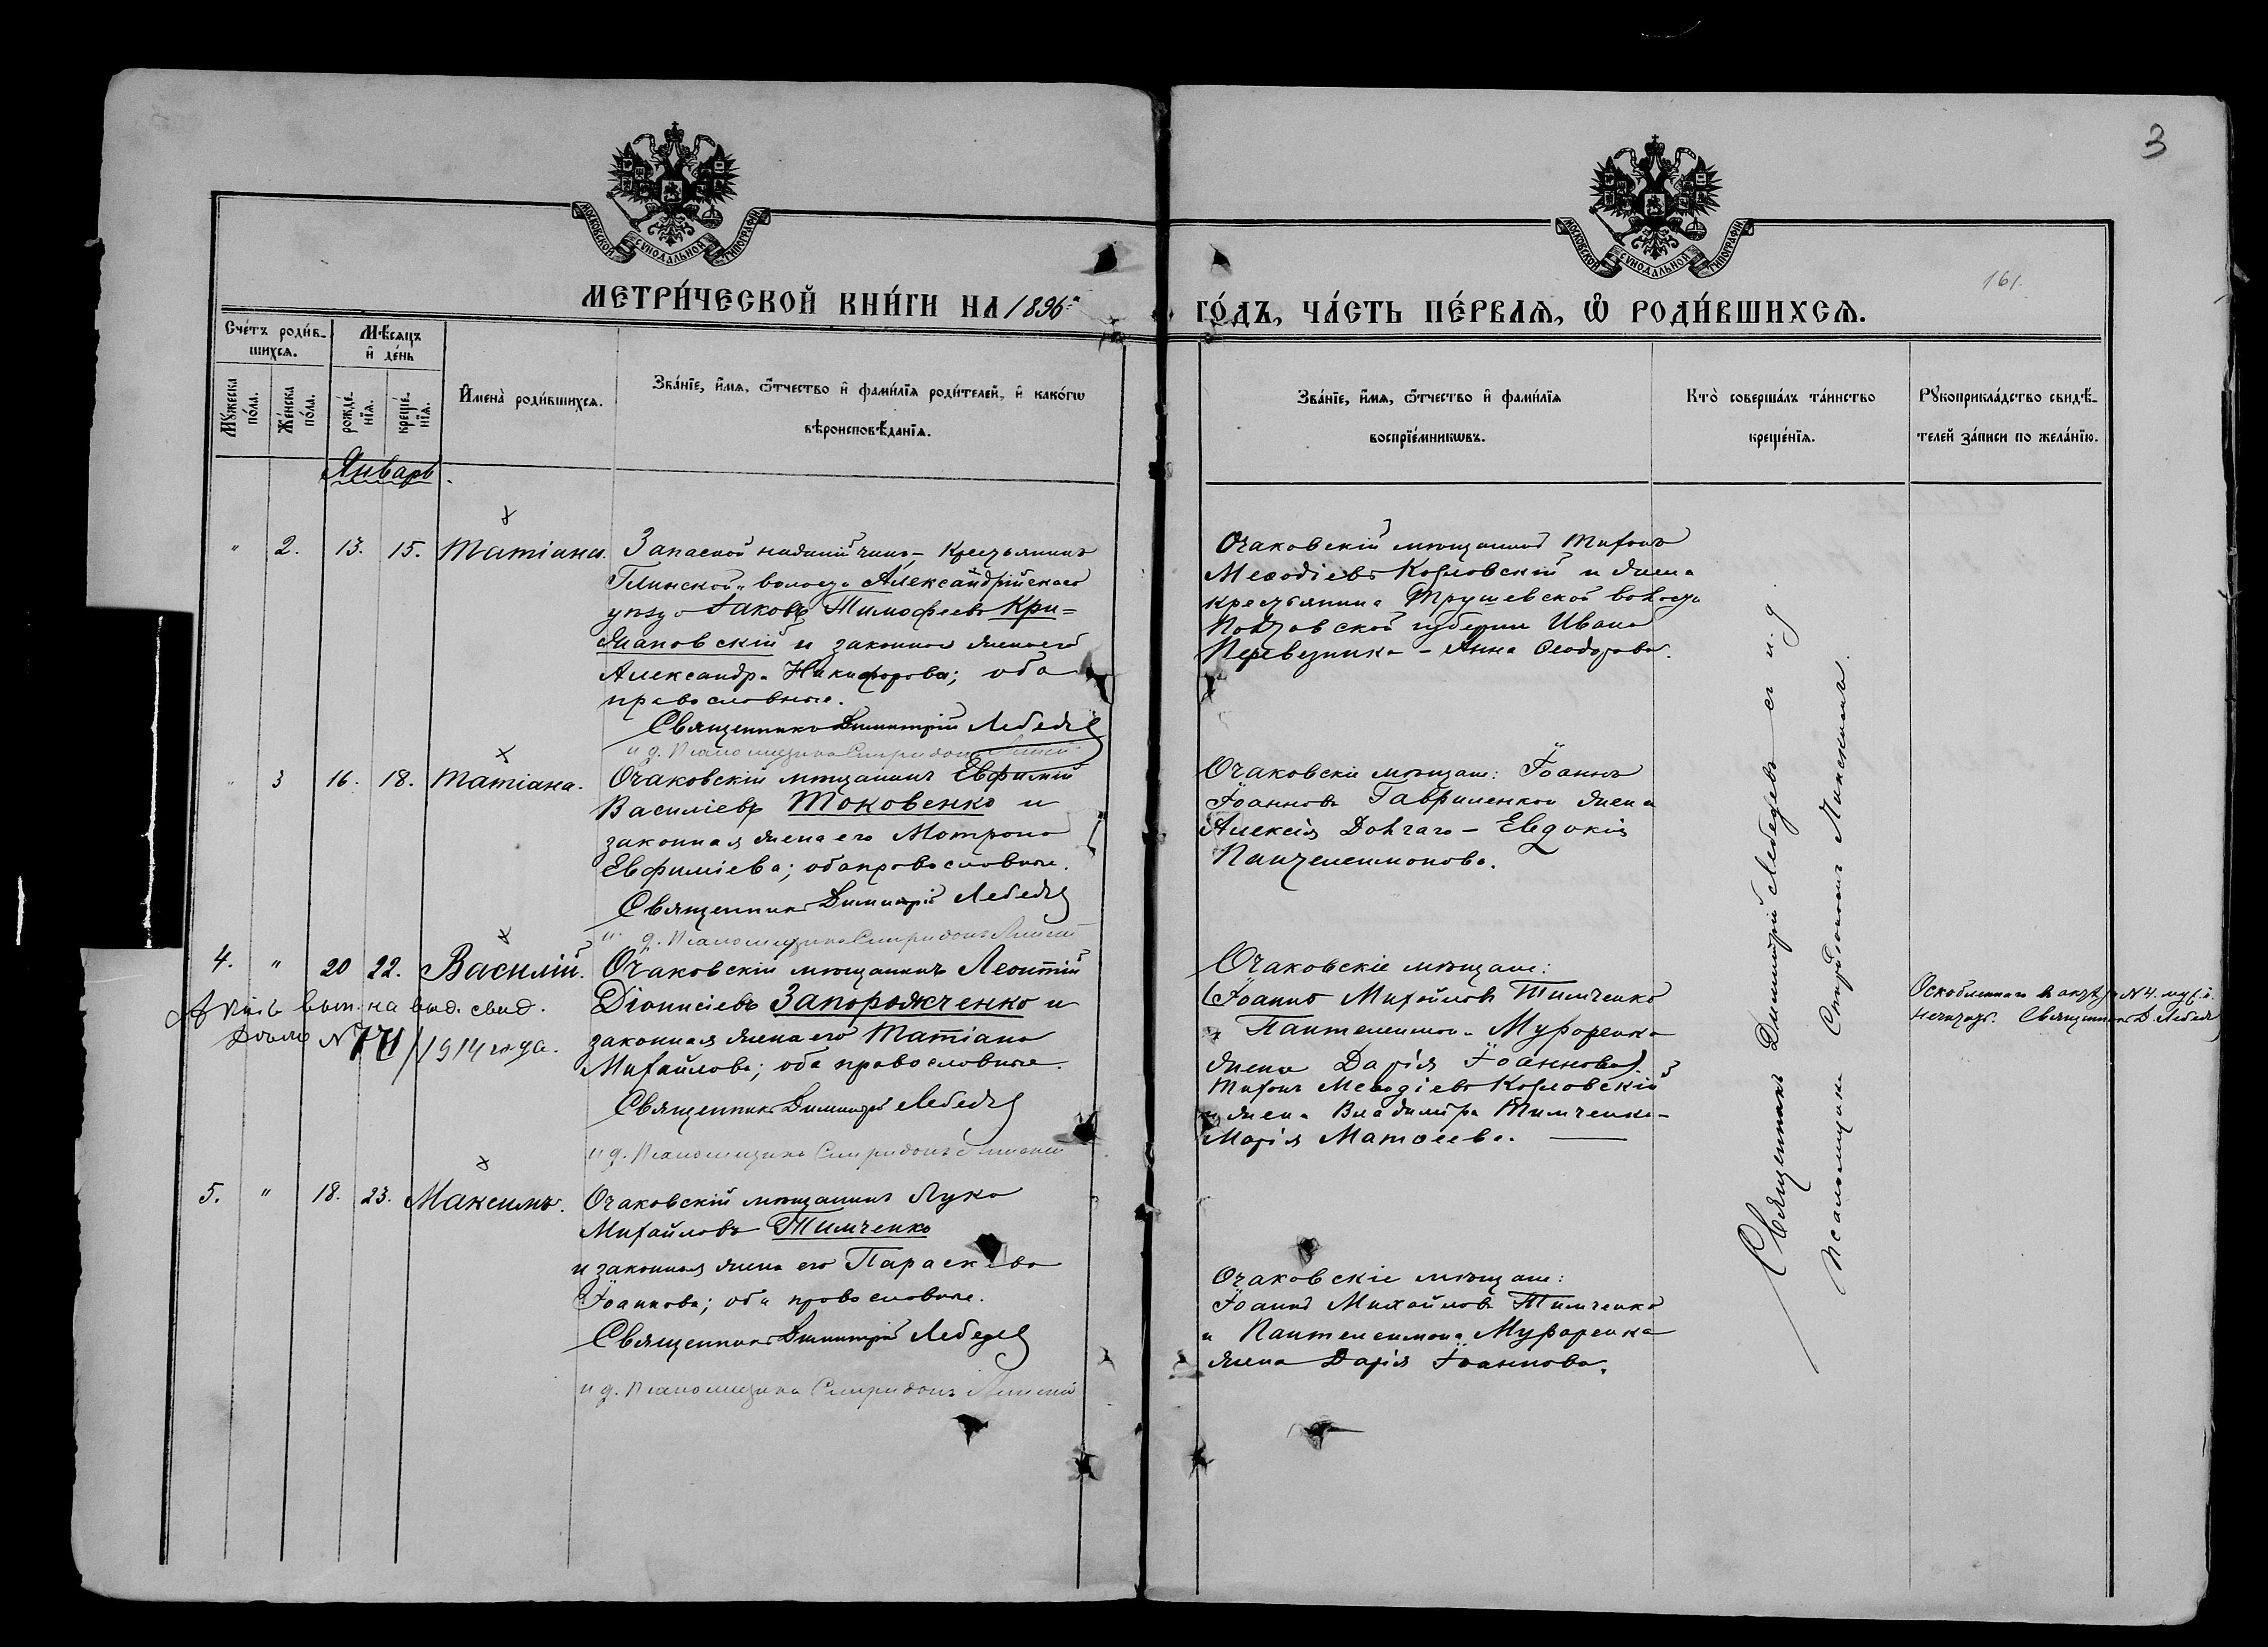 3
161.
МОСКОВСКОЙ СѴНОДАЛЬНОЙ ТИПОГРАФІИ
МОСКОВСКОЙ СѴНОДАЛЬНОЙ ТИПОГРАФІИ
МЕТРИ́ЧЕСКОЙ КНИ́ГИ НА 1896
ГО́ДЪ, ЧА́СТЬ ПЕ́РВАЯ, Ѡ҆ РОДИ́ВШИХСЯ.
Сче́тъ роди́в-
шихся.
Мꙋ́жеска по́ла.
Же́нска по́ла.
Мѣ́сяцъ
и҆ де́нь
рожде́-
нїя.
креще́-
нїя.
И҆мена̀ роди́вшихся.
Зва́нїе, и҆́мя, ѻ҆́тчество и҆ фами́лїя роди́телей, и҆ како́гѡ
вѣроисповѣ́данїя.
Зва́нїе, и҆́мя, ѻ҆́тчество и҆ фами́лїя
воспрїе́мникѡвъ.
Кто̀ соверша́лъ та́инство
креще́нїя.
Рꙋкоприкла́дство свидѣ́-
телей за́писи по жела́нїю.
Январь.
" 2. 13. 15. Татіана.
Запасной нижній чинъ – крестьянинъ
Глинской волости Александрійскаго
уѣзда Іаковъ Тимофеевъ Кри=
жановскій и законная жена его
Александра Никифорова; оба
православные.
Священникъ Димитрій Лебедевъ
и. д. Псаломщика Спиридонъ
Очаковскій мѣщанинъ Тихонъ
Меѳодіевъ Козловскій и жена
крестьянина Трушевской волости
Полтавской губерніи Ивана
Перевезника – Анна Ѳеодорова.
" 3 16. 18. Татіана.
Очаковскій мѣщанинъ Евфимій
Василіевъ Токовенко и
законная жена его Матрона
Евфиміева; оба православные.
Священникъ Димитрій Лебедевъ
и. д. Псаломщика Спиридонъ
Очаковскіе мѣщане: Іоаннъ
Іоанновъ Гавриленко и жена
Алексія Довгаго – Евдокія
Пантелеимонова.
4. " 20 22. Василій.
вып. на выд. свид.
№ 771/1914 года.
Очаковскій мѣщанинъ Леонтій
Діонисіевъ Запорожченко и
законная жена его Татіана
Михайлова; оба православные.
Священникъ Димитрій Лебедевъ
и. д. Псаломщика Спиридонъ
Очаковскіе мѣщане:
(Іоаннъ Михайловъ Тимченко
и Пантелеимона Муфоренка
жена Дарія Іоаннова).
Тихонъ Меѳодіевъ Козловскій
и жена Владиміра Тимченка –
Марія Матѳеева.
Оскобленнаго въ актѣ № 4. муж. п.
не читать. Священникъ Д. Лебедевъ
5. " 18. 23. Максимъ.
Очаковскій мѣщанинъ Лука
Михайловъ Тимченко
и законная жена его Параскева
Іоаннова; оба православные.
Священникъ Димитрій Лебедевъ
и. д. Псаломщика Спиридонъ
Очаковскіе мѣщане:
Іоаннъ Михайловъ Тимченко
и Пантелеимона Муфоренка
жена Дарія Іоаннова.
Священникъ Димитрій Лебедевъ съ и. д.
Псаломщика Спиридономъ